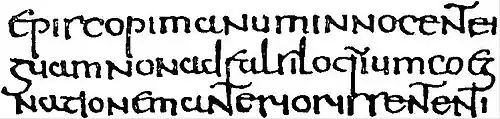 episcopimanuminnocentei
quamnonadfalsiloqiumcoeg
nationemanteriorissententi